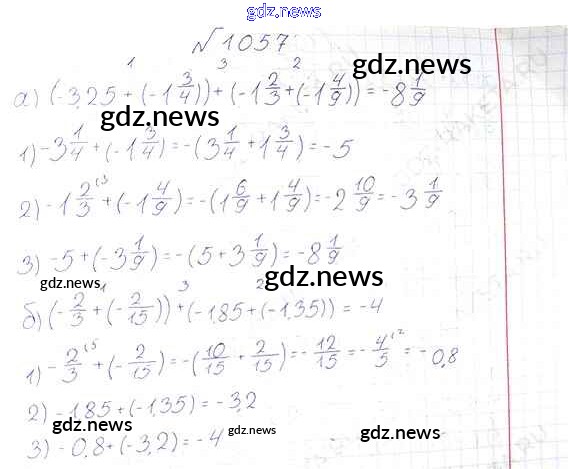 gdz.news
№1057
gdz.news
1 3 2
а) (-3,25 + (-1 3/4)) + (-1 2/3 + (-1 4/9)) = -8 1/9
gdz.news
1) -3 1/4 + (-1 3/4) = -(3 1/4 + 1 3/4) = -5
gdz.news
2) -1 2/3 ⁽³ + (-1 4/9) = -(1 6/9 + 1 4/9) = -2 10/9 = -3 1/9
3) -5 + (-3 1/9) = -(5 + 3 1/9) = -8 1/9
gdz.news gdz.news
1 3 2
б) (-2/3 + (-2/15)) + (-1,85 + (-1,35)) = -4
1) -2/3 ⁽⁵ + (-2/15) = -(10/15 + 2/15) = -12/15 = -4/5 ⁽² = -0,8
2) -1,85 + (-1,35) = -3,2
gdz.news gdz.news gdz.news
3) -0,8 + (-3,2) = -4